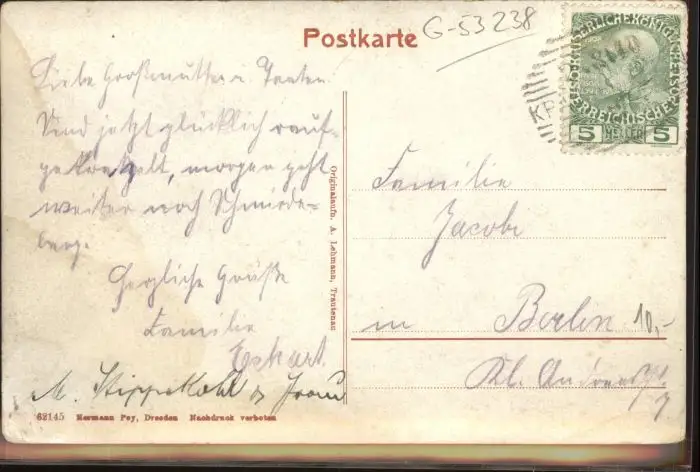 G-53238
Postkarte
Liebe Großmutter u. Tanten.
Sind jetzt glücklich rauf-
gekraxelt, morgen geht
weiter nach Schmiede-
berg.
Herzliche Grüße
Familie
Eckart.
M. Stippekohl & Frau
62145 Hermann Poy, Dresden Nachdruck verboten
Originalaufn. A. Lehmann, Trautenau
KAISERLICHE KÖNIGLICHE ÖSTERREICHISCHE POST
5 HELLER 5
KR
Familie
Jacobi
in Berlin
10,-
Kl. Andreasstr.
7